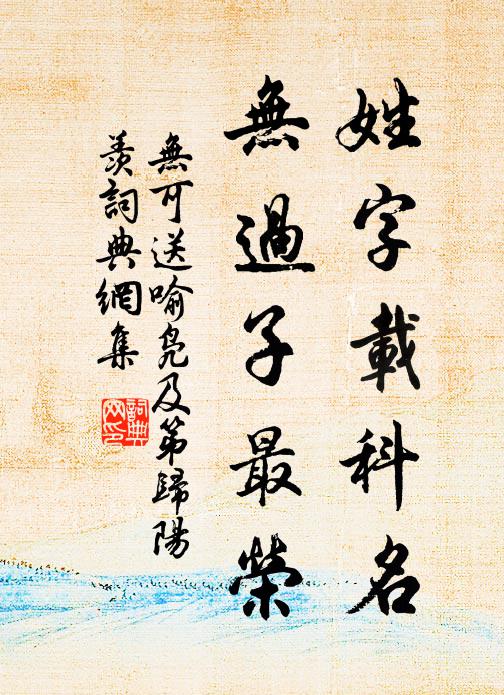 姓字載科名
無過子最榮
無可送喻鳧及第歸陽
羨詞典網集
詞典
网印